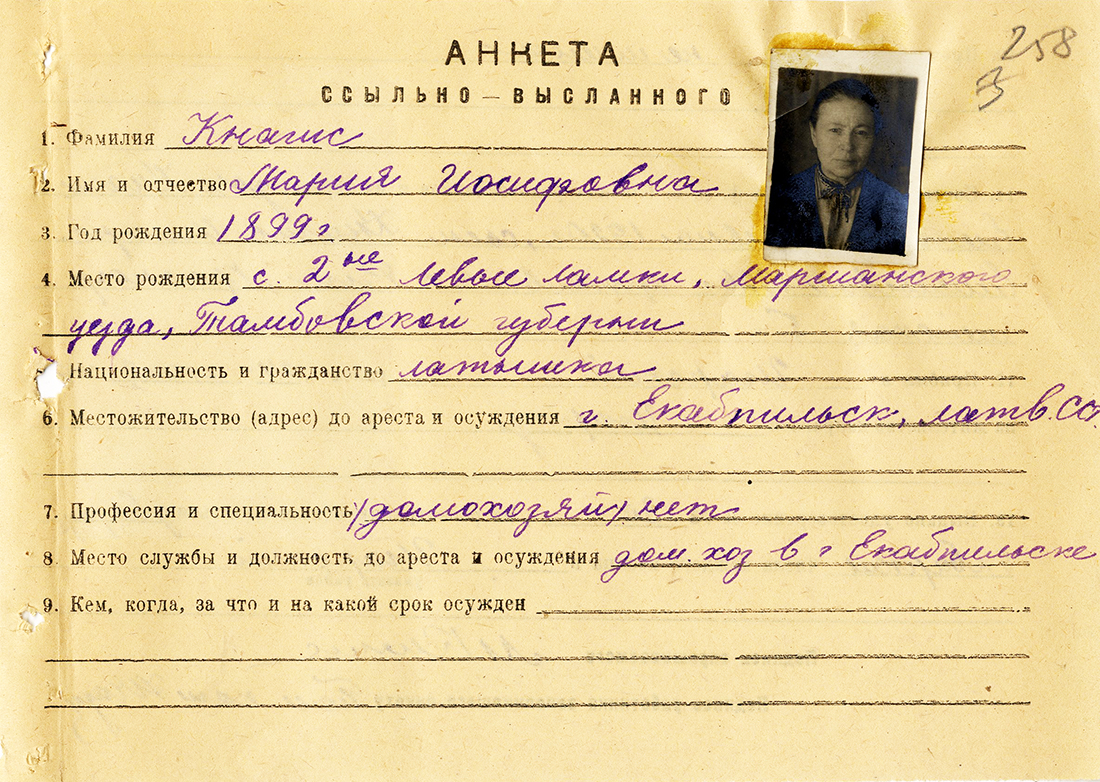 258
3
АНКЕТА
ССЫЛЬНО — ВЫСЛАННОГО
1. Фамилия Кнагис
2. Имя и отчество Мария Иосифовна
3. Год рождения 1899 г
4. Место рождения с. 2 ые Левые Ламки, Моршанского
уезда, Тамбовской губернии
Национальность и гражданство латышка
6. Местожительство (адрес) до ареста и осуждения г. Екабпильск, латв. СС
7. Профессия и специальность (домохозяй) нет
8. Место службы и должность до ареста и осуждения дом. хоз в г Екабпильске
9. Кем, когда, за что и на какой срок осужден